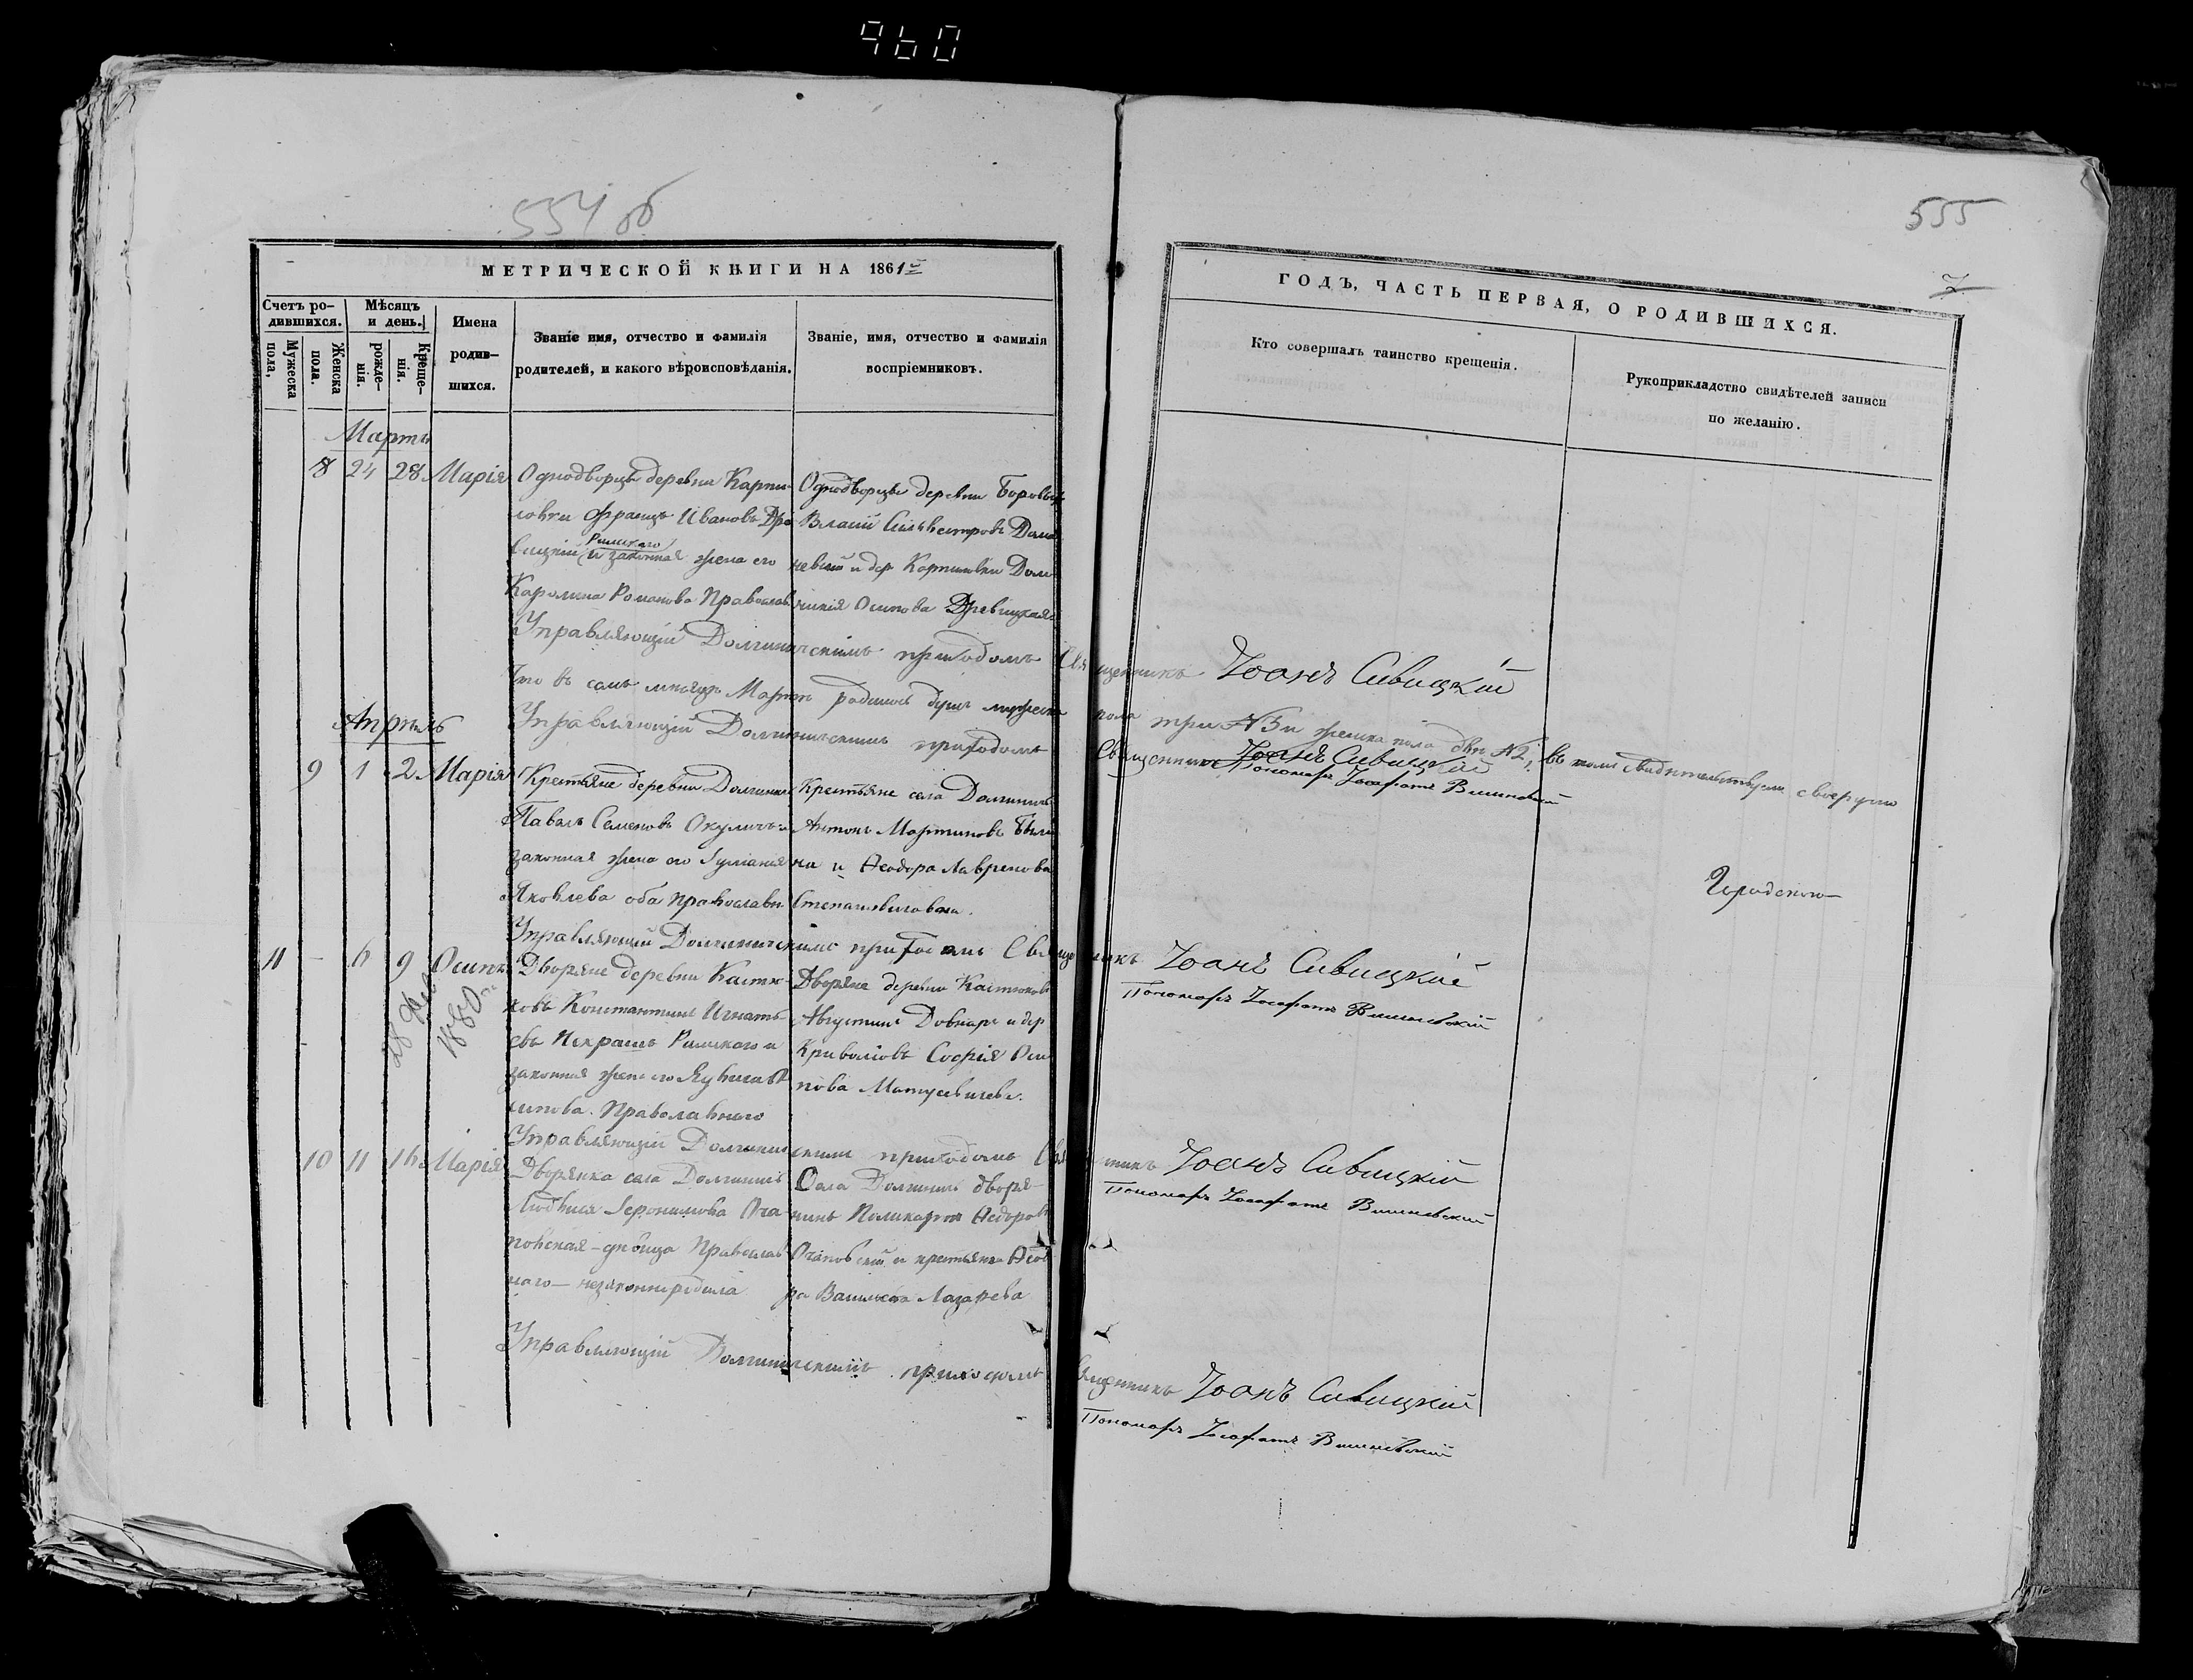 960
554 об
555
МЕТРИЧЕСКОЙ КНИГИ НА 1861й
ГОДЪ, ЧАСТЬ ПЕРВАЯ, О РОДИВШИХСЯ.
7
Счетъ ро-
дившихся.
Мужеска
пола,
Женска
пола.
Мѣсяцъ
и день.
рожде-
нія.
Креще-
нія.
Имена
родив-
шихся.
Званіе имя, отчество и фамилія
родителей, и какого вѣроисповѣданія.
Званіе, имя, отчество и фамилія
воспріемниковъ.
Кто совершалъ таинство крещенія.
Рукоприкладство свидѣтелей записи
по желанію.
Мартъ
8 24 28 Марія
Однодворцы деревни Карпи-
ловки Францъ Ивановъ
Римскаго
и законная жена его
Каролина Романова Православ
Однодворцы деревни
Власій Сильвестровъ
и дер Карпиловки Доми-
никія Осипова
Управляющій Долгиничскимъ приходомъ Священникъ Іоанъ Сивицкій
Что въ семъ мѣсяцѣ Мартѣ родилось душъ мужеска пола три №3 и женска пола двѣ №2, въ томъ свидѣтельствуемъ своеручно
Управляющій Долгиничскимъ приходомъ Священникъ Іоанъ Сивицкій
Пономарь Іосафатъ Вишневскій
Апрѣль
9 1 2 Марія
Крестьяне деревни Долгиничъ
Павелъ Семеновъ Окуличъ и
законная жена его Іуліанія
Яковлева оба православн
Крестьяне села Долгиничъ
Антонъ Мартиновъ
на и Ѳеодора Лавренова
Управляющій Долгиничскимъ приходомъ Священникъ Іоанъ Сивицкій
Пономарь Іосафатъ Вишневскій
11 - 6 9 Осипъ
1880
Дворяне деревни Кастю-
ковъ Константинъ Игнать-
евъ Некрашъ Римскаго и
законная жена его Ядвига О
сипова. Православнаго
Дворяне деревни Кастюковъ
Августинъ Довнаръ и дер
Софія Оси
пова Матусевичева.
Управляющій Долгиничскимъ приходомъ Священникъ Іоанъ Сивицкій
Пономарь Іосафатъ Вишневскій
10 11 16 Марія
Дворянка села Долгиничъ
Людвися Іеронимова Оча-
повская-дѣвица Православ
наго- незаконнородила
Села Долгиничъ дворя-
нинъ Поликарпъ Ѳедоровъ
Очаповскій и крестьянка Ѳеодо
ра Васильева Лазарева
Управляющій Долгиничскимъ приходомъ Священникъ Іоанъ Сивицкій
Пономарь Іосафатъ Вишневскій